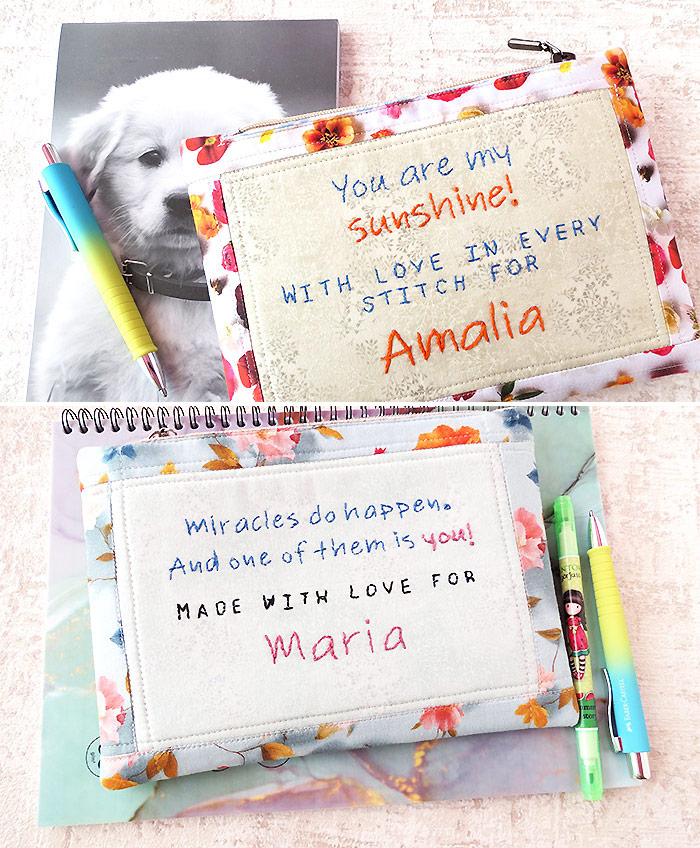 You are my
sunshine!
WITH LOVE IN EVERY
STITCH FOR
Amalia
Miracles do happen.
And one of them is you!
MADE WITH LOVE FOR
Maria
FABER-CASTELL